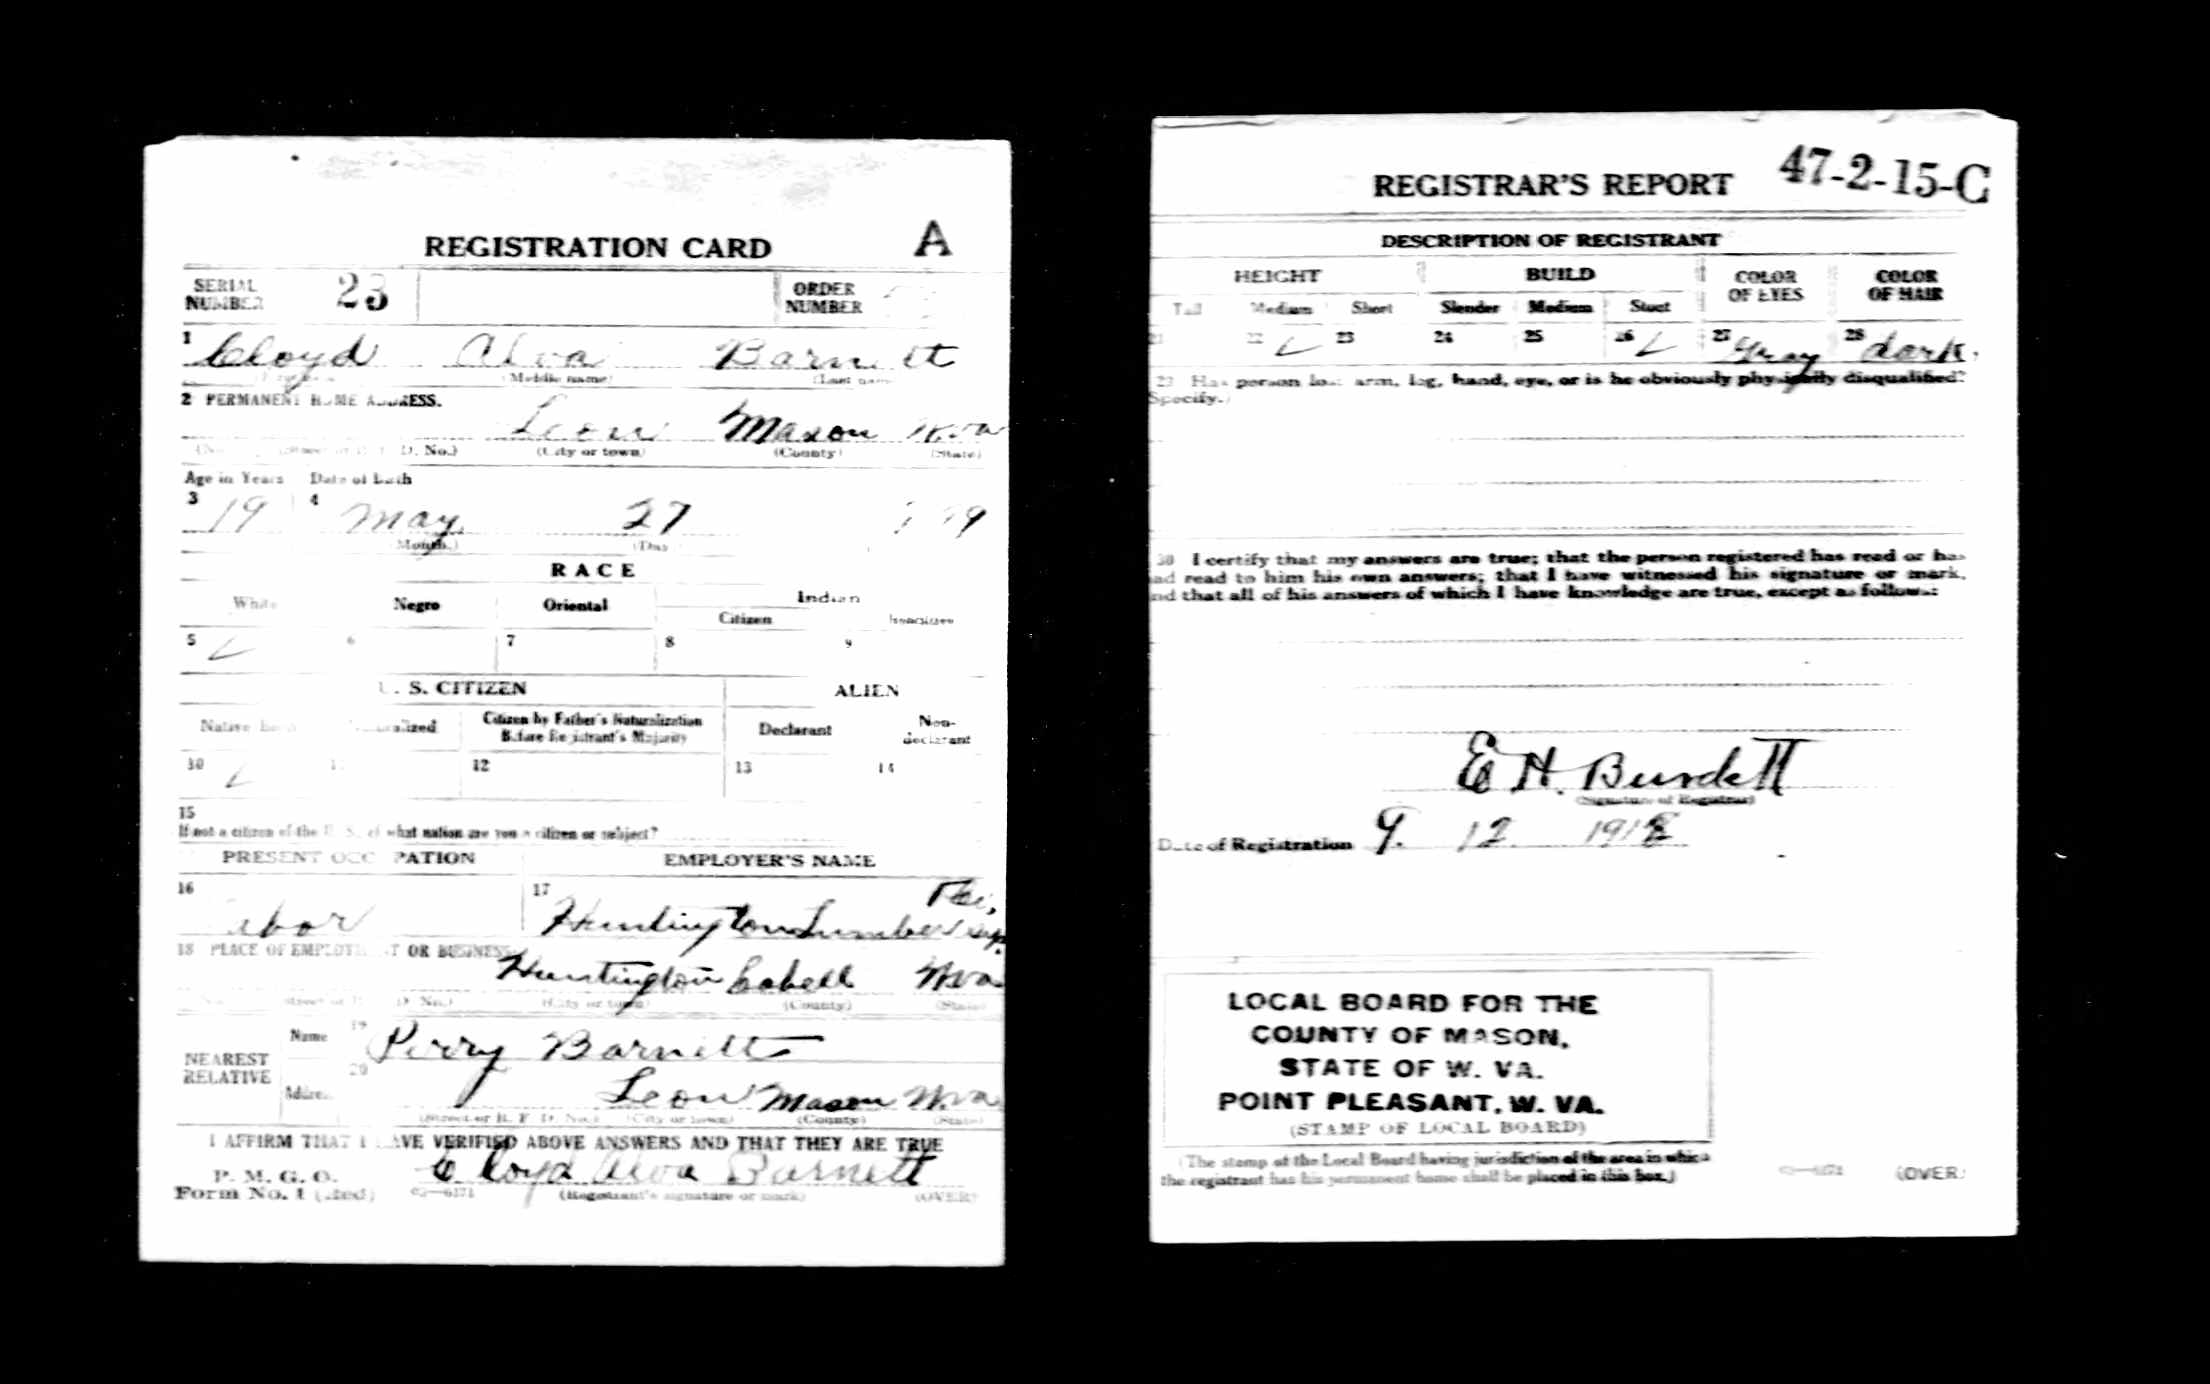 REGISTRATION CARD A
SERIAL NUMBER 23 ORDER NUMBER
1 Cloyd Alva Barnett
(Middle name) (Last name)
2 PERMANENT HOME ADDRESS.
Leon Mason W.va
D. No.) (City or town) (County) (State)
Age in Years Date of birth
3 19 4 May 27
(Month.) (Day
RACE
White Negro Oriental Indian
Citizen
5 ✓ 6 7 8 9
U. S. CITIZEN ALIEN
Native Citizen by Father's Naturalization Before Registrant's Majority Declarant Non-declarant
10 ✓ 12 13 14
15
If not a citizen of the U. S., of what nation are you a citizen or subject?
PRESENT OCCUPATION EMPLOYER'S NAME
16 Labor 17 Huntington Lumber
18 PLACE OF EMPLOYMENT OR BUSINESS
Huntington Cabell W.va
D. No.) (City or town) (County) (State)
NEAREST RELATIVE
Name 19 Perry Barnett
Address 20 Leon Mason W.va
(Street or R. F. D. No.) (City or town) (County) (State)
I AFFIRM THAT I HAVE VERIFIED ABOVE ANSWERS AND THAT THEY ARE TRUE
P. M. G. O.
Form No. 1 Cloyd Alva Barnett
(Registrant's signature or mark) (OVER)
REGISTRAR'S REPORT 47-2-15-C
DESCRIPTION OF REGISTRANT
HEIGHT BUILD COLOR OF EYES COLOR OF HAIR
Tall Medium Short Slender Medium Stout
21 22 ✓ 23 24 25 26 ✓ 27 Gray 28 dark.
29 Has person lost arm, leg, hand, eye, or is he obviously physically disqualified?
Specify.)
30 I certify that my answers are true; that the person registered has read or has
had read to him his own answers; that I have witnessed his signature or mark,
and that all of his answers of which I have knowledge are true, except as follows:
E H. Burdett
(Signature of Registrar)
Date of Registration 9. 12. 1918
LOCAL BOARD FOR THE
COUNTY OF MASON,
STATE OF W. VA.
POINT PLEASANT, W. VA.
(STAMP OF LOCAL BOARD)
(The stamp of the Local Board having jurisdiction of the area in which
the registrant has his permanent home shall be placed in this box.)
(OVER)